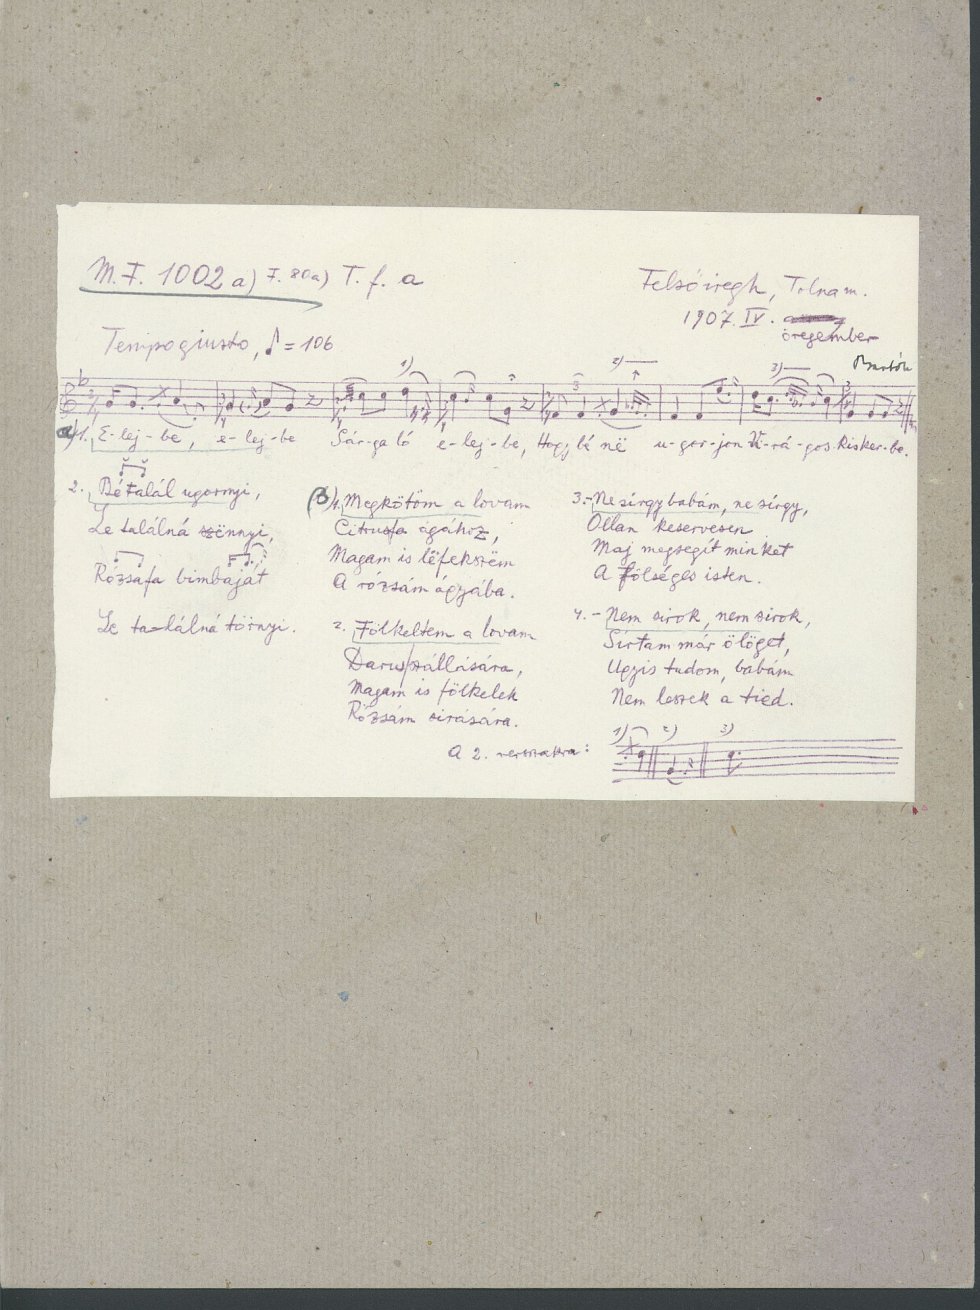 M.F. 1002 a) F. 80a) T. f. a
Felsőiregh, Tolnam.
1907. IV.
öregember
Tempo giusto, ♪ = 106
Bartók
1) 2) 3)
a) 1. E-lej-be, e-lej-be Sár-ga ló e-lej-be, Hogy bé në u-gor-jon Vi-rá-gos kisker-be.
2. Bé talál ugornyi,
Le találná ënnyi,
Rózsafa bimbaját
Le ta-lálná törnyi.
β) 1. Megkötöm a lovam
Citrusfa ágához,
Magam is lëfekszëm
A rózsám ágyába.
2. Fölkeltem a lovam
Daruszállására,
Magam is fölkelek
Rózsám sirására.
3. - Ne sirgy babám, ne sirgy,
Ollan keservesen
Maj megsegít minket
A fölséges isten.
4. - Nem sirok, nem sirok,
Sirtam már ölöget,
Ugyis tudom, babám
Nem leszek a tied.
A 2. versszakra:
1) 2) 3)